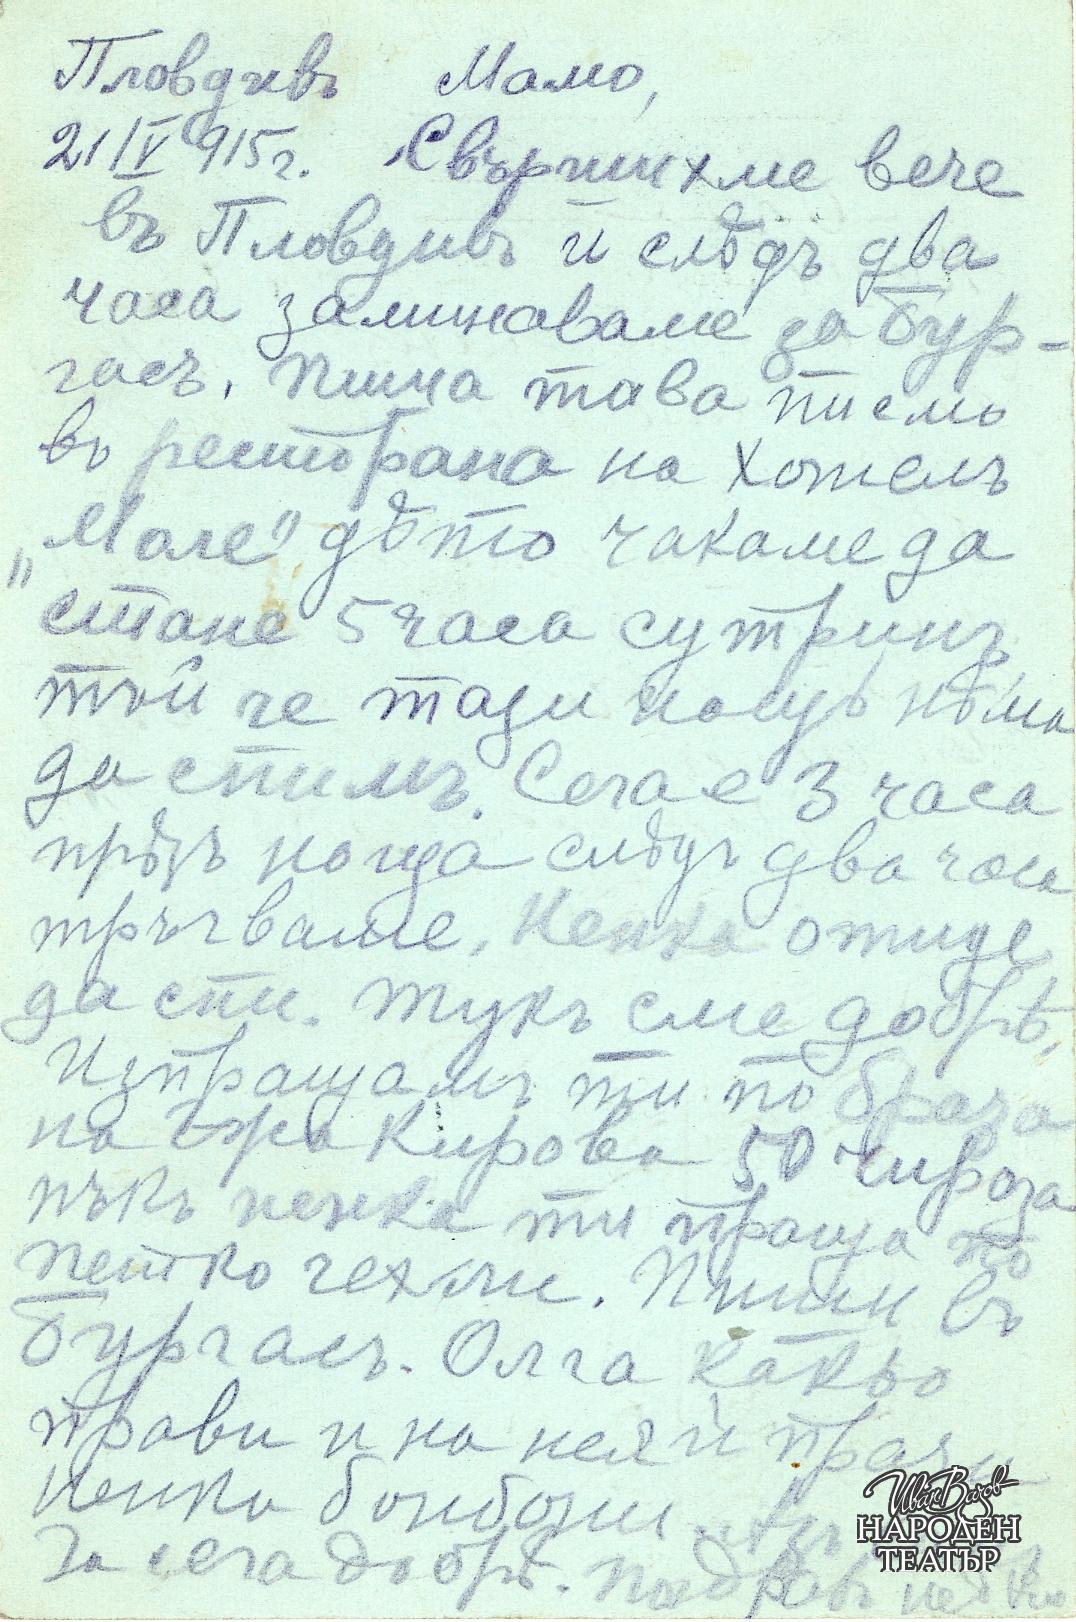 Пловдивъ Мамо,
21/IV 915 г. Свършихме вече
въ Пловдивъ и слѣдъ два
часа заминаваме за Бур-
гасъ. Пиша това писмо
въ ресторана на Хотелъ
„Моле" дѣто чакаме да
стане 5 часа сутринъ
тъй че тази нощъ нѣма
да спимъ. Сега е 3 часа
прѣзъ нощта слѣдъ два часа
тръгваме. Ненка отиде
да спи. Тукъ сме добрѣ.
Изпращамъ ти по брата
на Кирова 50 чироза
пъкъ Ненка ти праща по
Петко чехли. Пиши въ
Бургасъ. Олга какво
прави и на нея и прати
Ненка бонбони. Азъ
За сега добрѣ. Поздравъ
Иван Вазов
НАРОДЕН
ТЕАТЪР